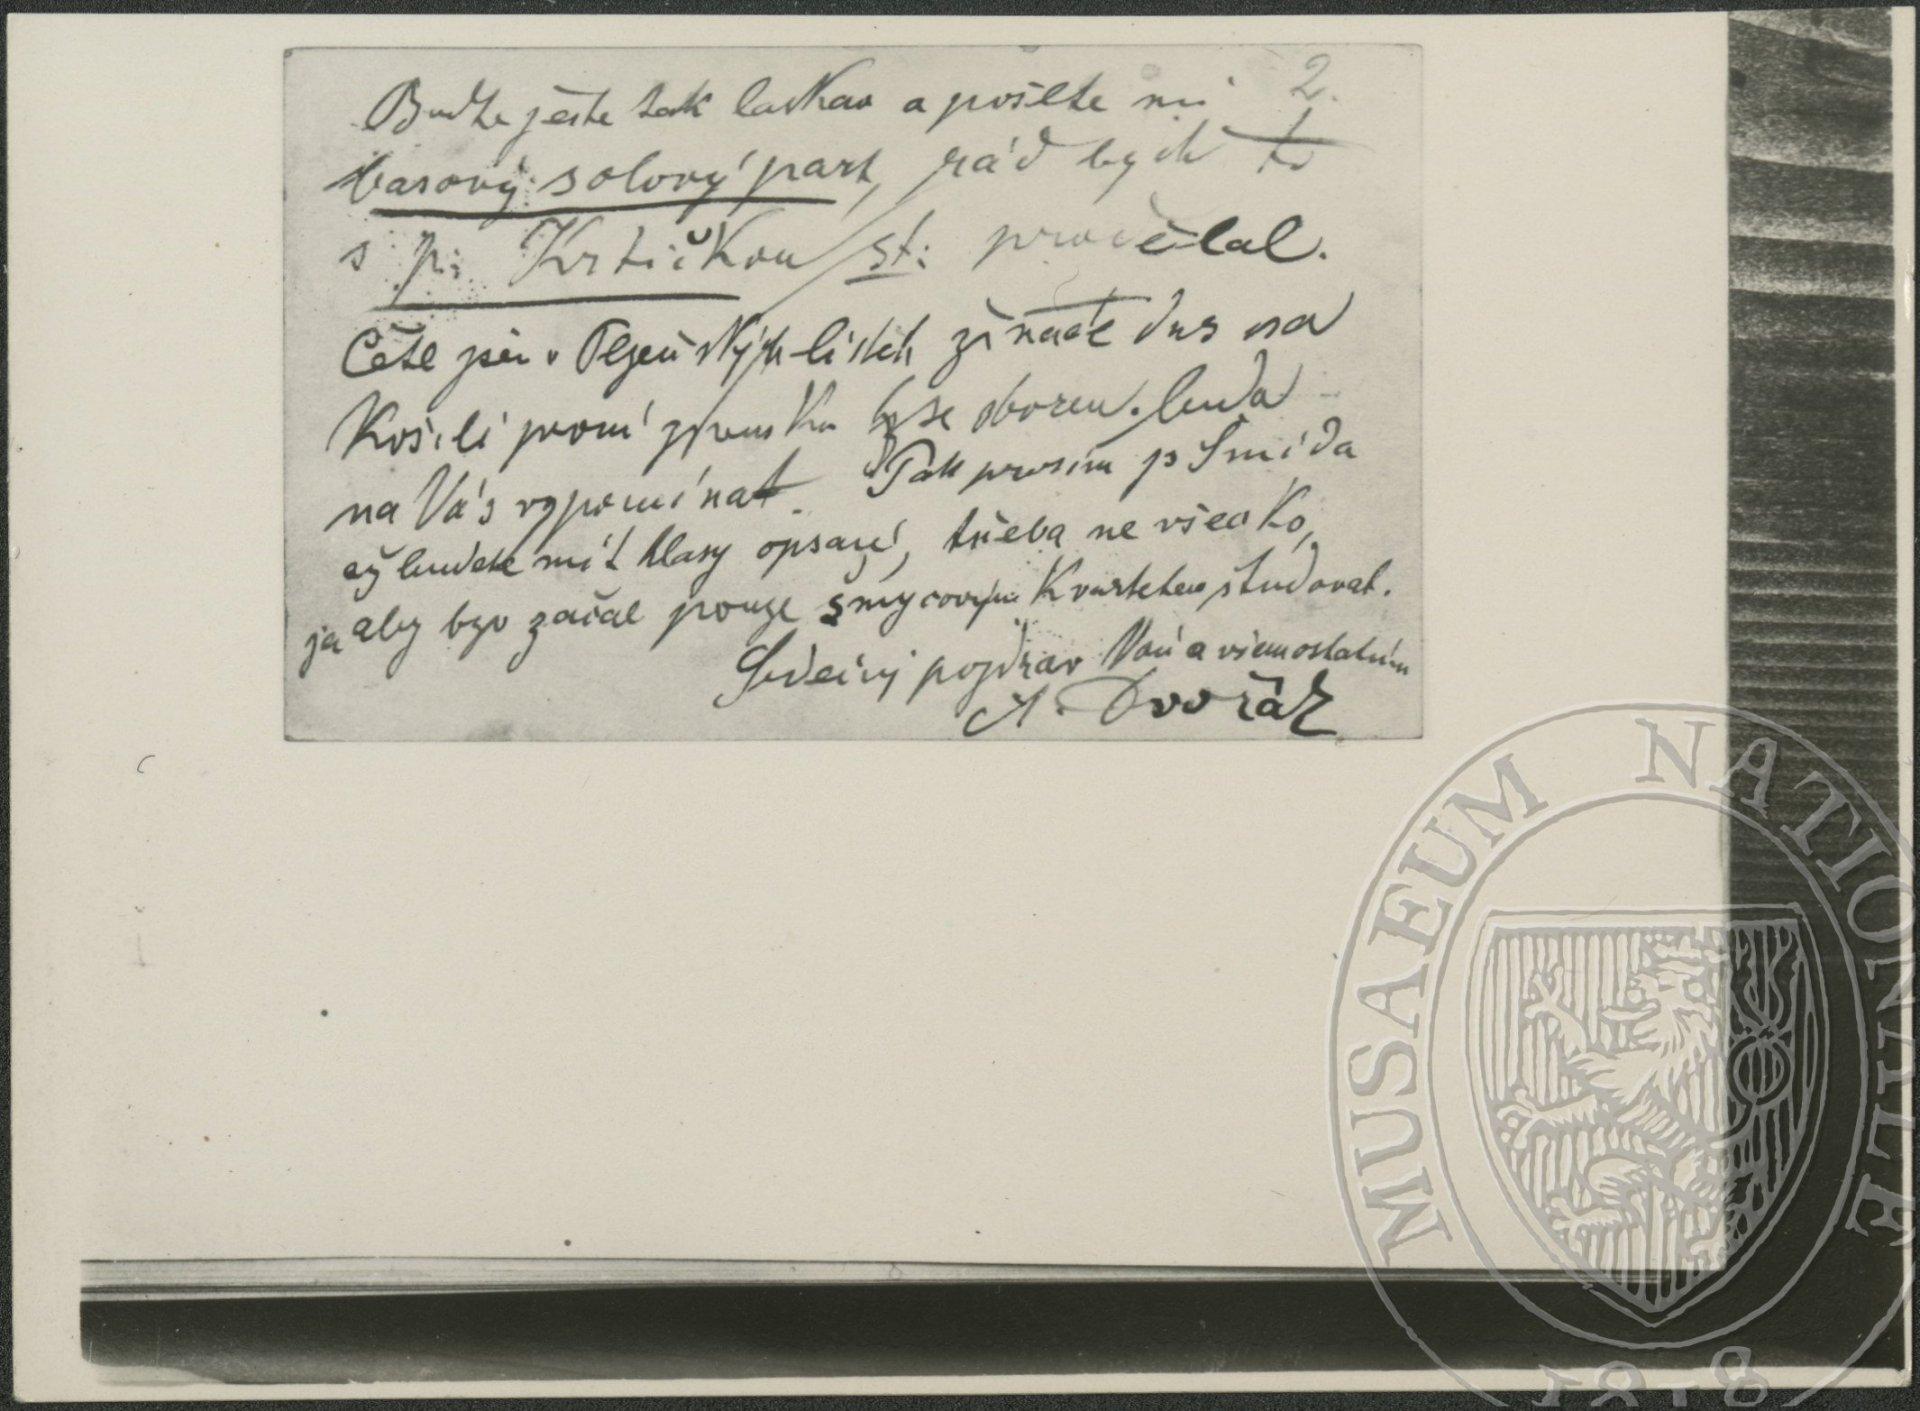 2.
Buďte ještě tak laskav a pošlete mi
basový solový part, rád bych to
s p: Krtičkou st: prodělal.
Četl jsem v Plzeňských listech že dnes na
Košili první zkouška se sborem. budu
na Vás vzpomínat. Pak prosím p Šmída
až budete mít hlasy opsané, třeba ne všecko,
ja aby byv začal pouze smycovým Kvartetem študovat.
Srdečný pozdrav Vám a všem ostatním
A. Dvořák
MUSAEUM NATIONALE
1818